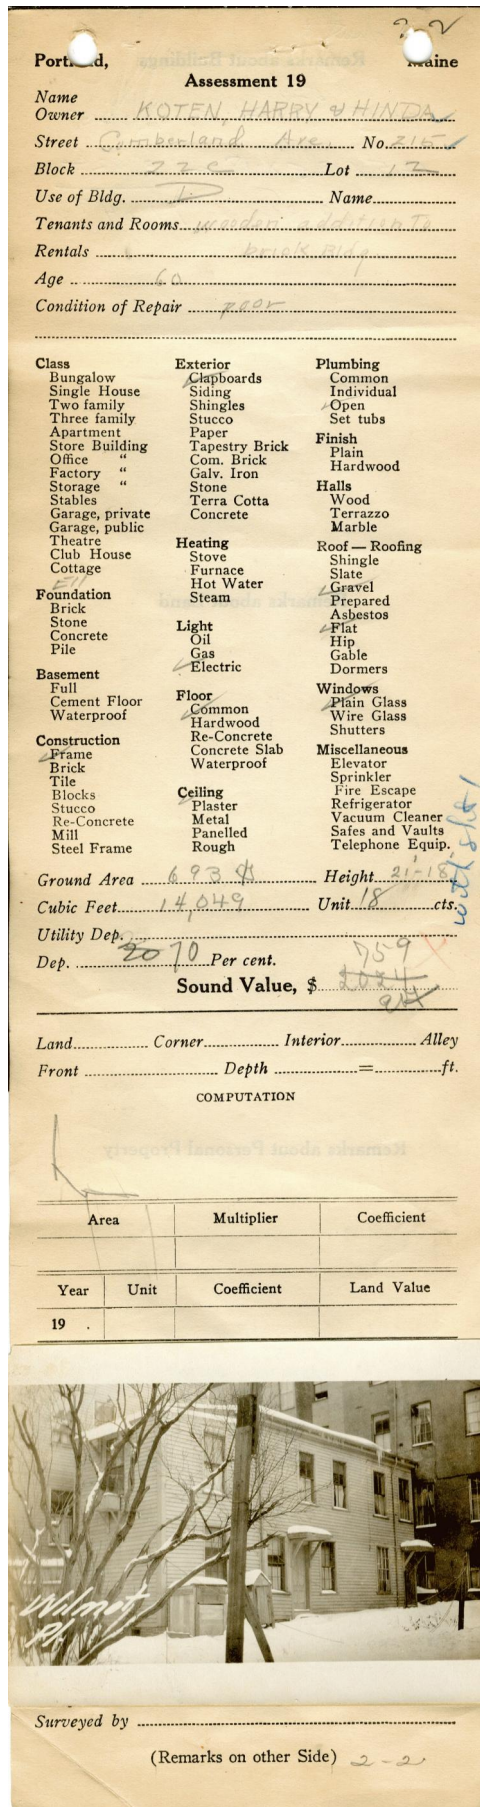 2-2
Portland, Maine
Assessment 19
Name
Owner KOTEN, HARRY & HINDA
Street Cumberland Ave. No. 215
Block 22C Lot 12
Use of Bldg. D Name
Tenants and Rooms wooden addition To
Rentals brick Bldg
Age 60
Condition of Repair poor
Class
Bungalow
Single House
Two family
Three family
Apartment
Store Building
Office "
Factory "
Storage "
Stables
Garage, private
Garage, public
Theatre
Club House
Cottage
Ell
Foundation
Brick
Stone
Concrete
Pile
Basement
Full
Cement Floor
Waterproof
Construction
Frame
Brick
Tile
Blocks
Stucco
Re-Concrete
Mill
Steel Frame
Exterior
Clapboards
Siding
Shingles
Stucco
Paper
Tapestry Brick
Com. Brick
Galv. Iron
Stone
Terra Cotta
Concrete
Heating
Stove
Furnace
Hot Water
Steam
Light
Oil
Gas
Electric
Floor
Common
Hardwood
Re-Concrete
Concrete Slab
Waterproof
Ceiling
Plaster
Metal
Panelled
Rough
Plumbing
Common
Individual
Open
Set tubs
Finish
Plain
Hardwood
Halls
Wood
Terrazzo
Marble
Roof — Roofing
Shingle
Slate
Gravel
Prepared
Asbestos
Flat
Hip
Gable
Dormers
Windows
Plain Glass
Wire Glass
Shutters
Miscellaneous
Elevator
Sprinkler
Fire Escape
Refrigerator
Vacuum Cleaner
Safes and Vaults
Telephone Equip.
Ground Area 693 Height 21-18
Cubic Feet 14,049 Unit 18 cts.
Utility Dep.
Dep. 20 70 Per cent. 759
Sound Value, $ 2024
Land Corner Interior Alley
Front Depth = ft.
COMPUTATION
Remarks about Personal Property
Area Multiplier Coefficient
Year Unit Coefficient Land Value
19 .
Wilmot
Pl.
Surveyed by
(Remarks on other Side) 2-2